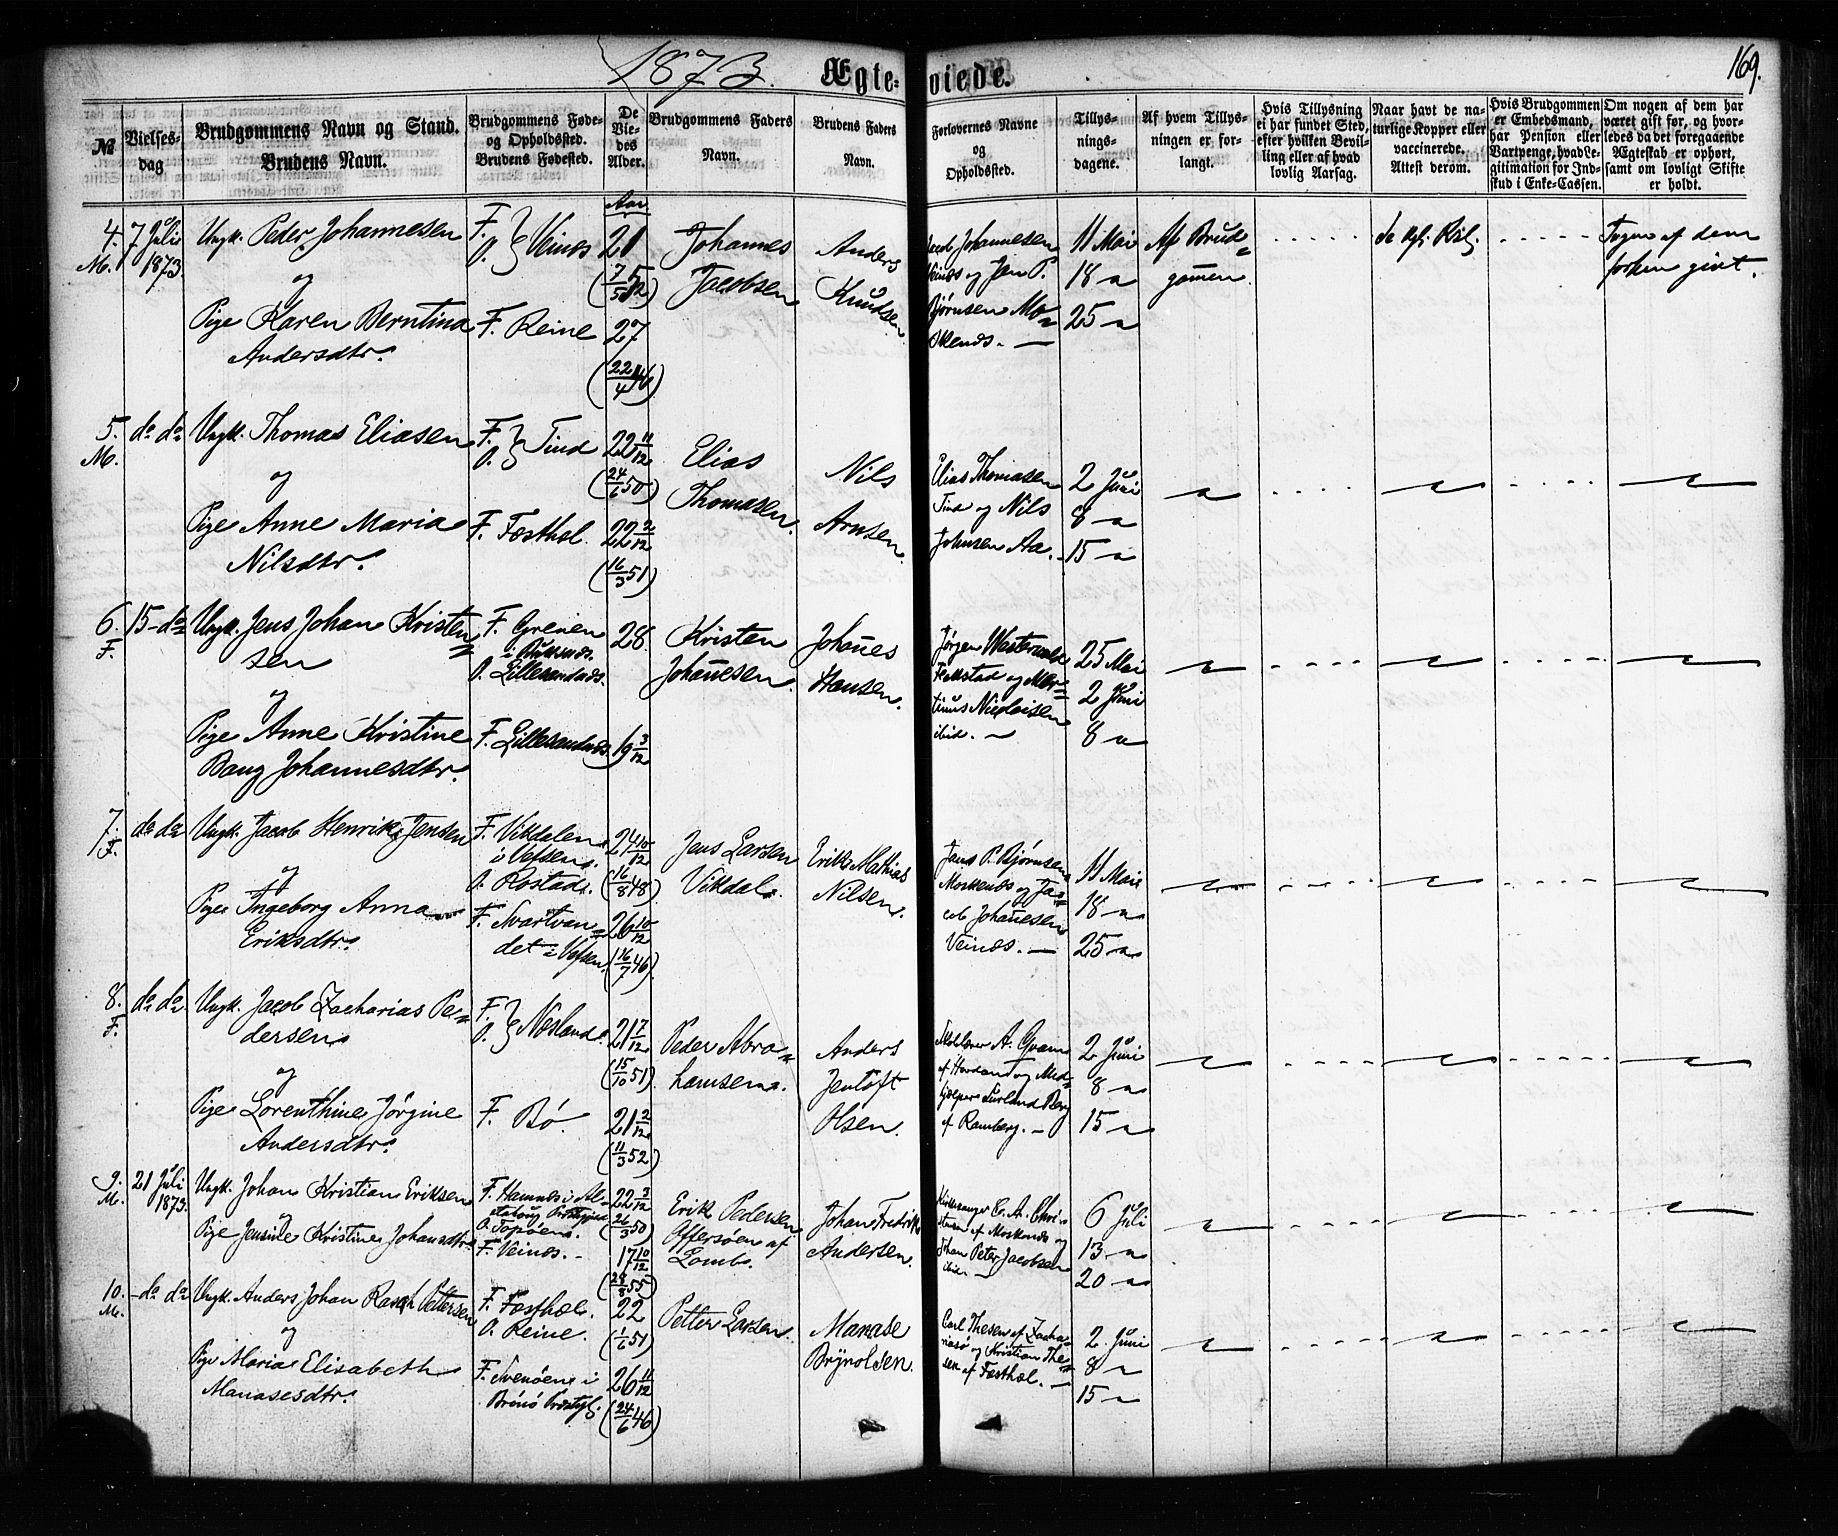 1873. Ægteviede. 169.
№
Vielses-
dag
Brudgommens Navn og Stand.
Brudens Navn.
Brudgommens Føde-
og Opholdssted.
Brudens Fødested.
De
Vie-
des
Alder.
Brudgommens Faders
Navn.
Brudens Faders
Navn.
Forlovernes Navne
og
Opholdssted.
Tillys-
nings-
dagene.
Af hvem Tillys-
ningen er for-
langt.
Hvis Tillysning
ei har fundet Sted,
efter hvilken Bevil-
ling eller af hvad
lovlig Aarsag.
Naar havt de na-
turlige Kopper eller
vaccinerede.
Attest derom.
Hvis Brudgommen
er Embedsmand,
har Pension eller
Vartpenge, hvad Le-
gitimation for Ind-
skud i Enke-Cassen.
Om nogen af dem har
været gift før, og hvor-
ledes da det foregaaende
Ægteskab er ophørt,
samt om lovligt Skifte
er holdt.
Aar
4.
M.
7 Juli
1873.
Ungk. Peder Johannesen
og
Pige Karen Berntina
Andersdtr.
F.
O. } Veinæs
F. Reine
21
(7/5 52)
27
(22/4 46)
Johannes
Jacobsen
Anders
Knudsen
Jacob Johannesen
Veinæs og Jens P.
Bjørnsen Mo=
skenæs. —
11 Mai
18 "
25 "
Af Brud=
gomen.
Ingen af dem
forhen givt.
5.
M.
do do
Ungk. Thomas Eliasen
og
Pige Anne Maria
Nilsdtr.
F.
O. } Tind
F. Fæsthæl.
22 11/12
(24/6 50)
22 2/12
(16/3 51)
Elias
Thomasen.
Nils
Arnsen.
Elias Thomasen
Tind og Nils
Johnsen Aa.
2 Juni
8 "
15 "
6.
F.
15 - do
Ungk. Jens Johan Kristen=
sen
og
Pige Anne Kristine
Bang Johannesdtr.
F. Grenen
i Buksnæs.
O. Lillesandnæs.
F. Lillesandnæs.
28.
19 3/12
Kristen
Johanesen.
Johanes
Hansen.
Jørgen
og Mor=
tinus Nicolaisen
ibid. —
25 Mai
2 Juni
8 "
7.
F.
do do
Ungk. Jacob Henrik Jensen
og
Pige Ingeborg Anna
Eriksdtr.
F. Vikdalen
i Vefsen.
O. Rostad.
F. Svartvan=
det i Vefsen.
24 10/12
(16/8 48)
26 10/12
(16/7 46)
Jens Larsen
Vikdal.
Erik Mathias
Nilsen.
Jens P. Bjørnsen
Moskenæs og Ja=
cob Johanesen
Veinæs. —
11 Mai
18 "
25 "
8.
F.
do do
Ungk. Jacob Zacharias Pe=
dersen
og
Pige Lorenthine Jørgine
Andersdtr.
F.
O. } Næsland.
F. Bø.
21 7/12
(15/10 51)
21 2/12
(11/3 52)
Peder Abra=
hamsen.
Anders
Jentoft
Olsen.
A.
af og Med=
hjælper Berg
af Ramberg. —
2 Juni
8 "
15 "
9.
M.
21 Juli
1873.
Ungk. Johan Kristian Eriksen
og
Pige Jensine Kristine Johansdtr.
F. Hamnes i Al=
stahoug Prstgjeld
O. Topøen.
F. Veinæs. -
22 3/12
(26/3 50)
17 10/12
(28/8 55)
Erik Pedersen
Offersøen af
Johan Fredrik
Andersen.
Kirkesanger E. A. Chri=
stensen af Moskenæs og
Johan Peter Jacobsen
ibid. —
6 Juli
13 "
20 "
10.
M.
- do do
Ungk. Anders Johan Rasch Pettersen
og
Pige Maria Elisabeth
Manasesdtr.
F. Fæsthæl.
O. Reine.
F. Svenøen i
Brønø Præstgj.
22
(1/6 51)
26 11/12
(24/6 46)
Petter Larsen.
Manase
Brynolsen.
Carl Thesen af Zacha=
riasø og Kristian The=
sen af Fæsthæl. —
2 Juni
8 "
15 "